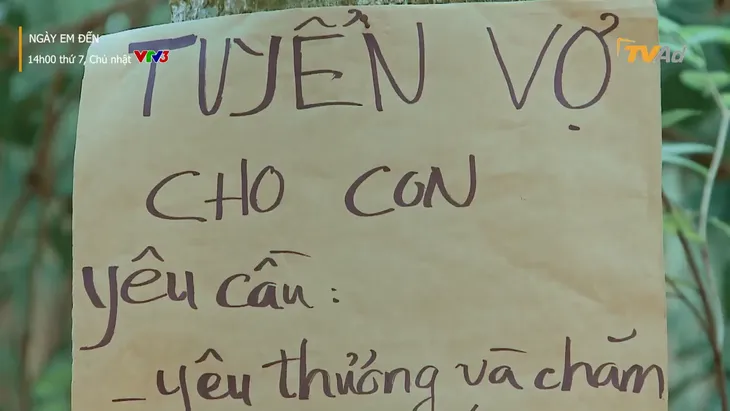 NGÀY EM ĐẾN
14h00 thứ 7, Chủ nhật VTV3
TVAd
TUYỂN VỢ
CHO CON
yêu cầu:
- yêu thương và chăm